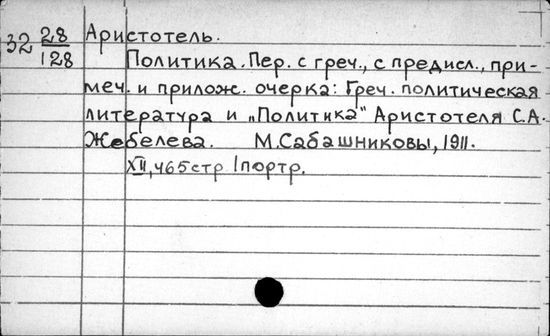 32 28/128 Аристотель.
Политика. Пер. с греч., с предисл., при-
меч. и прилож. очерка: Греч. политическая
литература и „Политика" Аристотеля С.А.
Жебелева. М. Сабашниковы, 1911.
XII, 465 стр 1 портр.